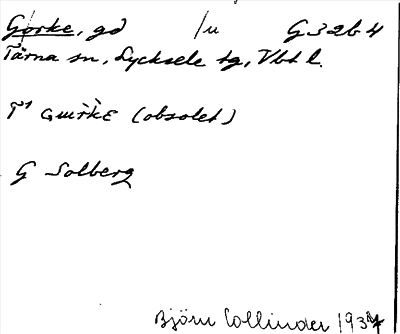 Gorke, gd /u G32b4
Tärna sn, Lycksele tg, Vbt l.
(obsolet)
G Solberg
Björn Collinder 1937